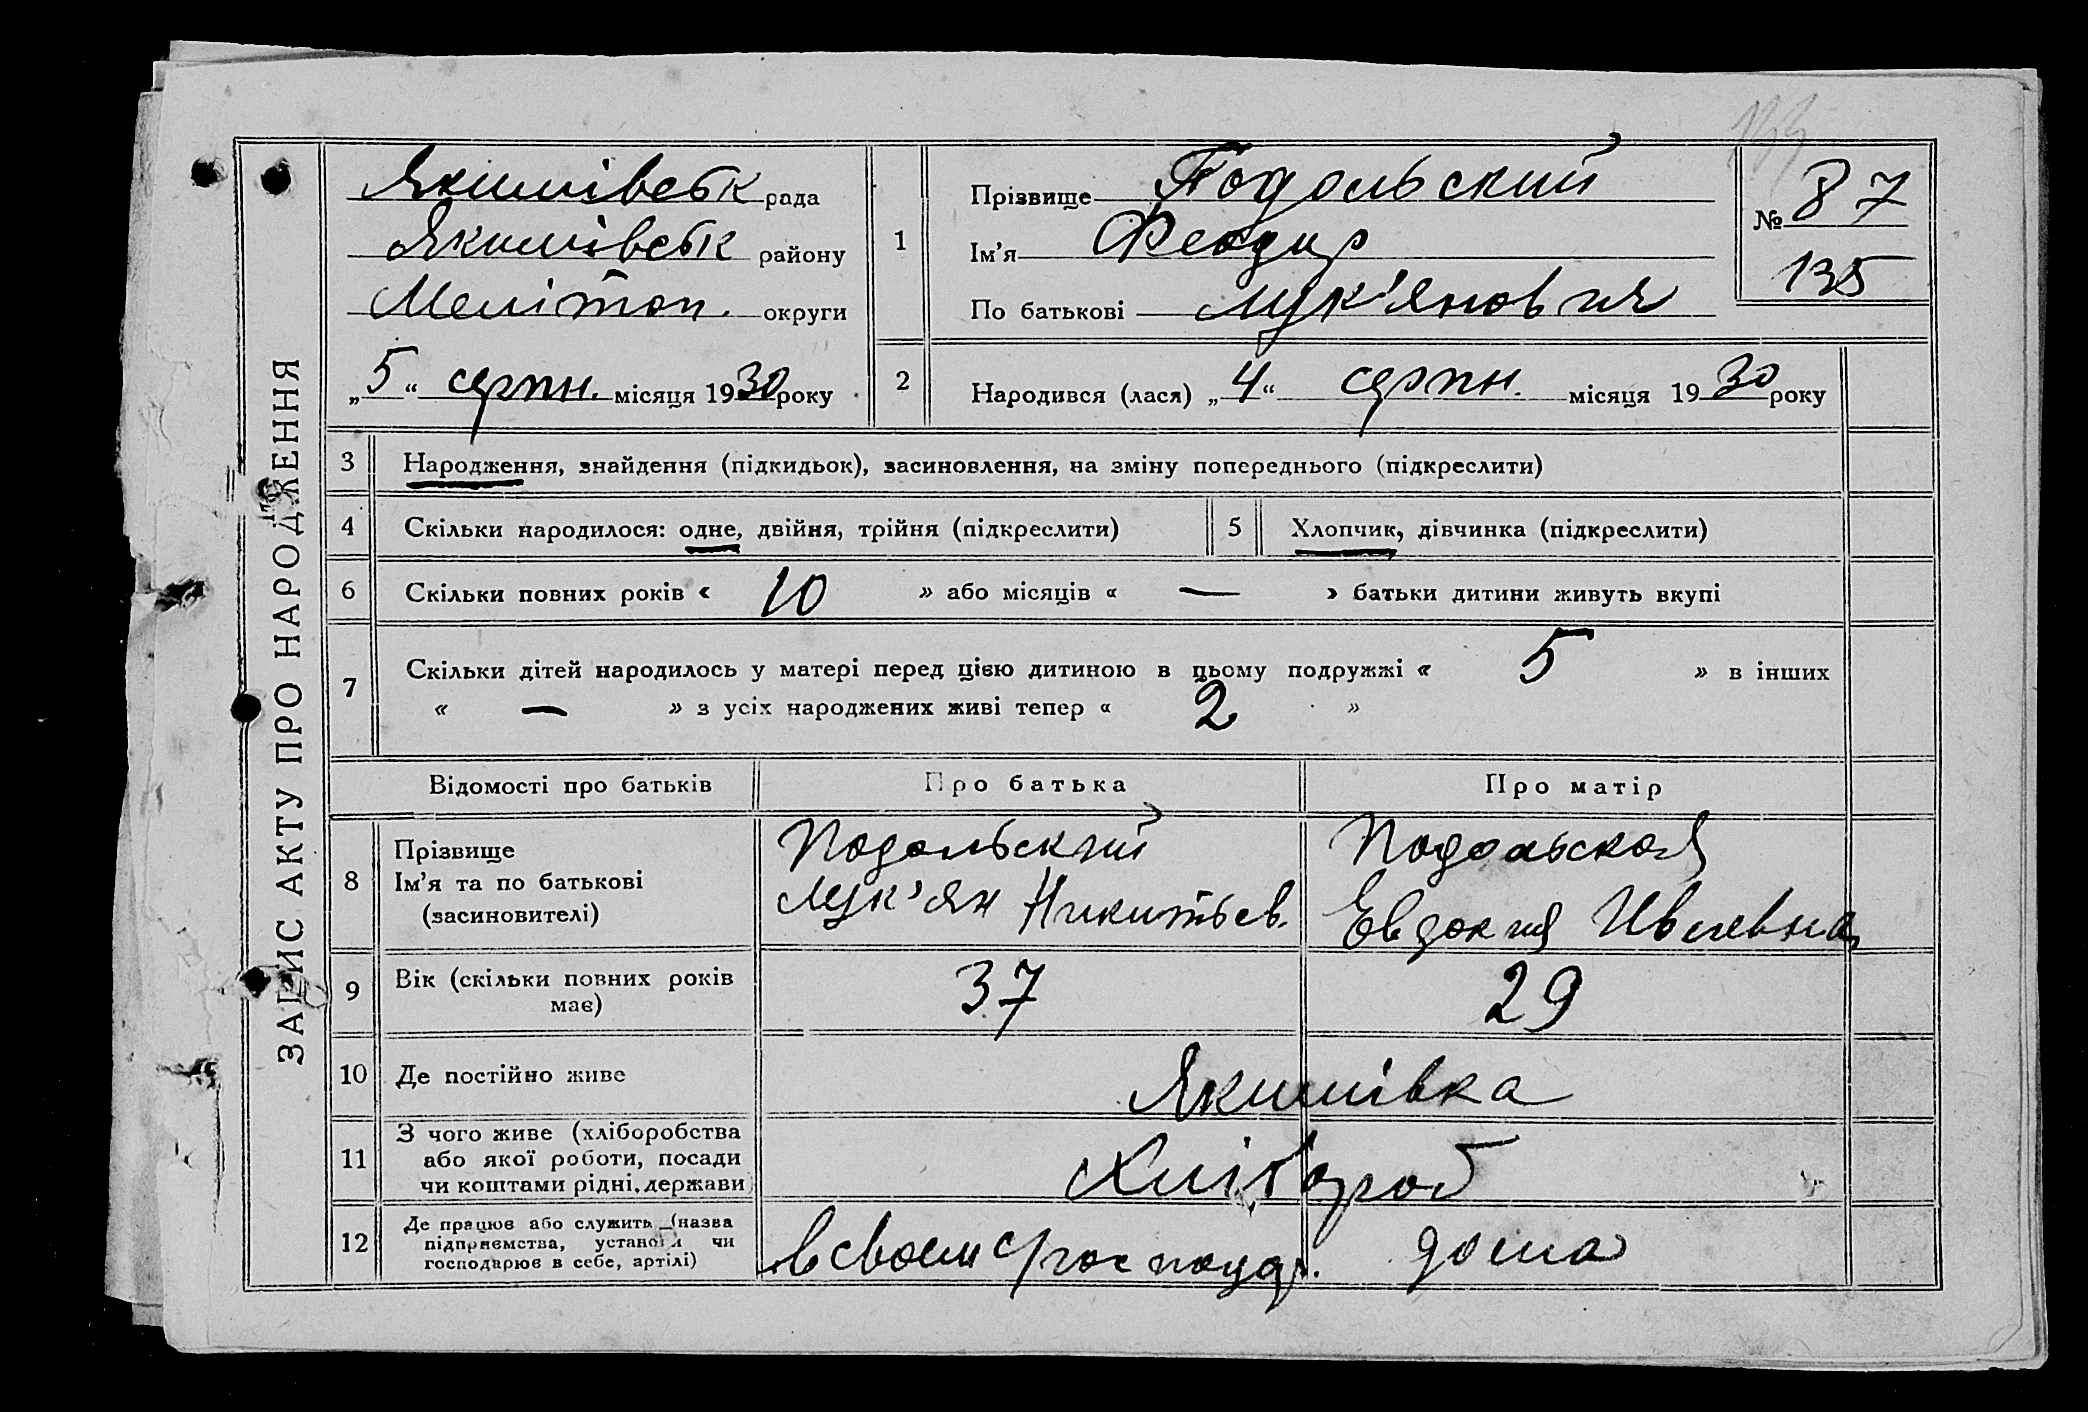 ЗАПИС АКТУ ПРО НАРОДЖЕННЯ
Якимівськ рада
Якимівськ району
Мелітоп. округи
„5“ серпн. місяця 1930 року
1
Прізвище Подольский
Ім'я Феодир
По батькові Лук'янович
№ 87
135
2
Народився (лася) „4“ серпн. місяця 1930 року
3 Народження, знайдення (підкидьок), засиновлення, на зміну попереднього (підкреслити)
4 Скільки народилося: одне, двійня, трійня (підкреслити)
5 Хлопчик, дівчинка (підкреслити)
6 Скільки повних років « 10 » або місяців « — » батьки дитини живуть вкупі
7 Скільки дітей народилось у матері перед цією дитиною в цьому подружжі « 5 » в інших
« — » з усіх народжених живі тепер « 2 »
Відомості про батьків Про батька Про матір
8 Прізвище
Ім'я та по батькові
(засиновителі)
Подольский
Лук'ян Никитьев.
Подольская
Евдокия Ивлевна
9 Вік (скільки повних років
має)
37 29
10 Де постійно живе Якимівка
11 З чого живе (хліборобства
або якої роботи, посади
чи коштами рідні, держави
Хлібороб
12 Де працює або служить (назва
підприємства, установи чи
господарює в себе, артілі)
в своем господ. дома